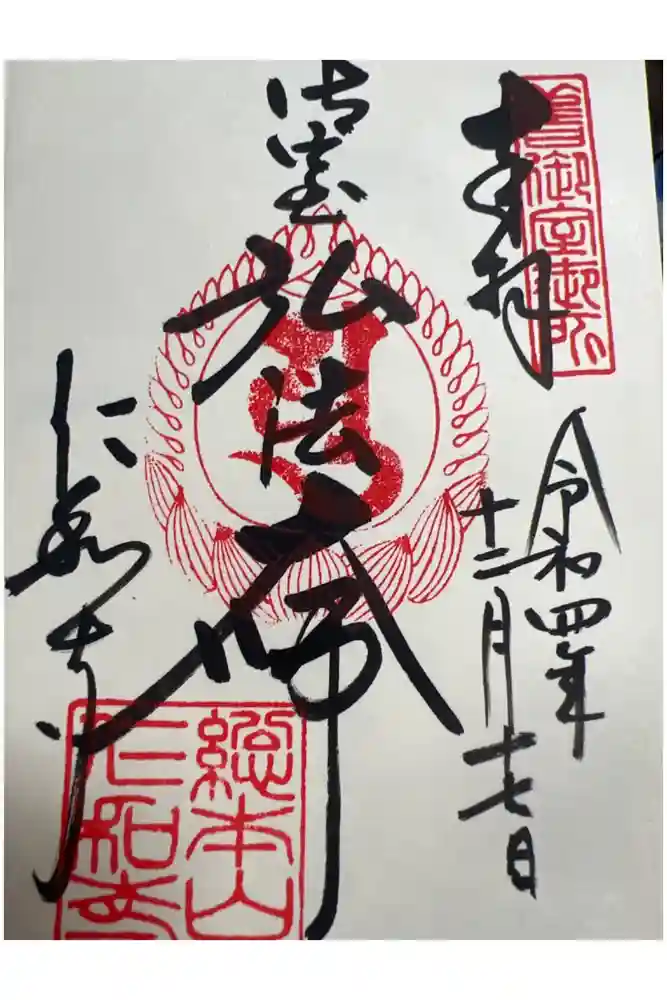 奉拝
舊御室御所
令和四年
十二月十七日
御室
弘法大師
仁和寺
総本山
仁和寺